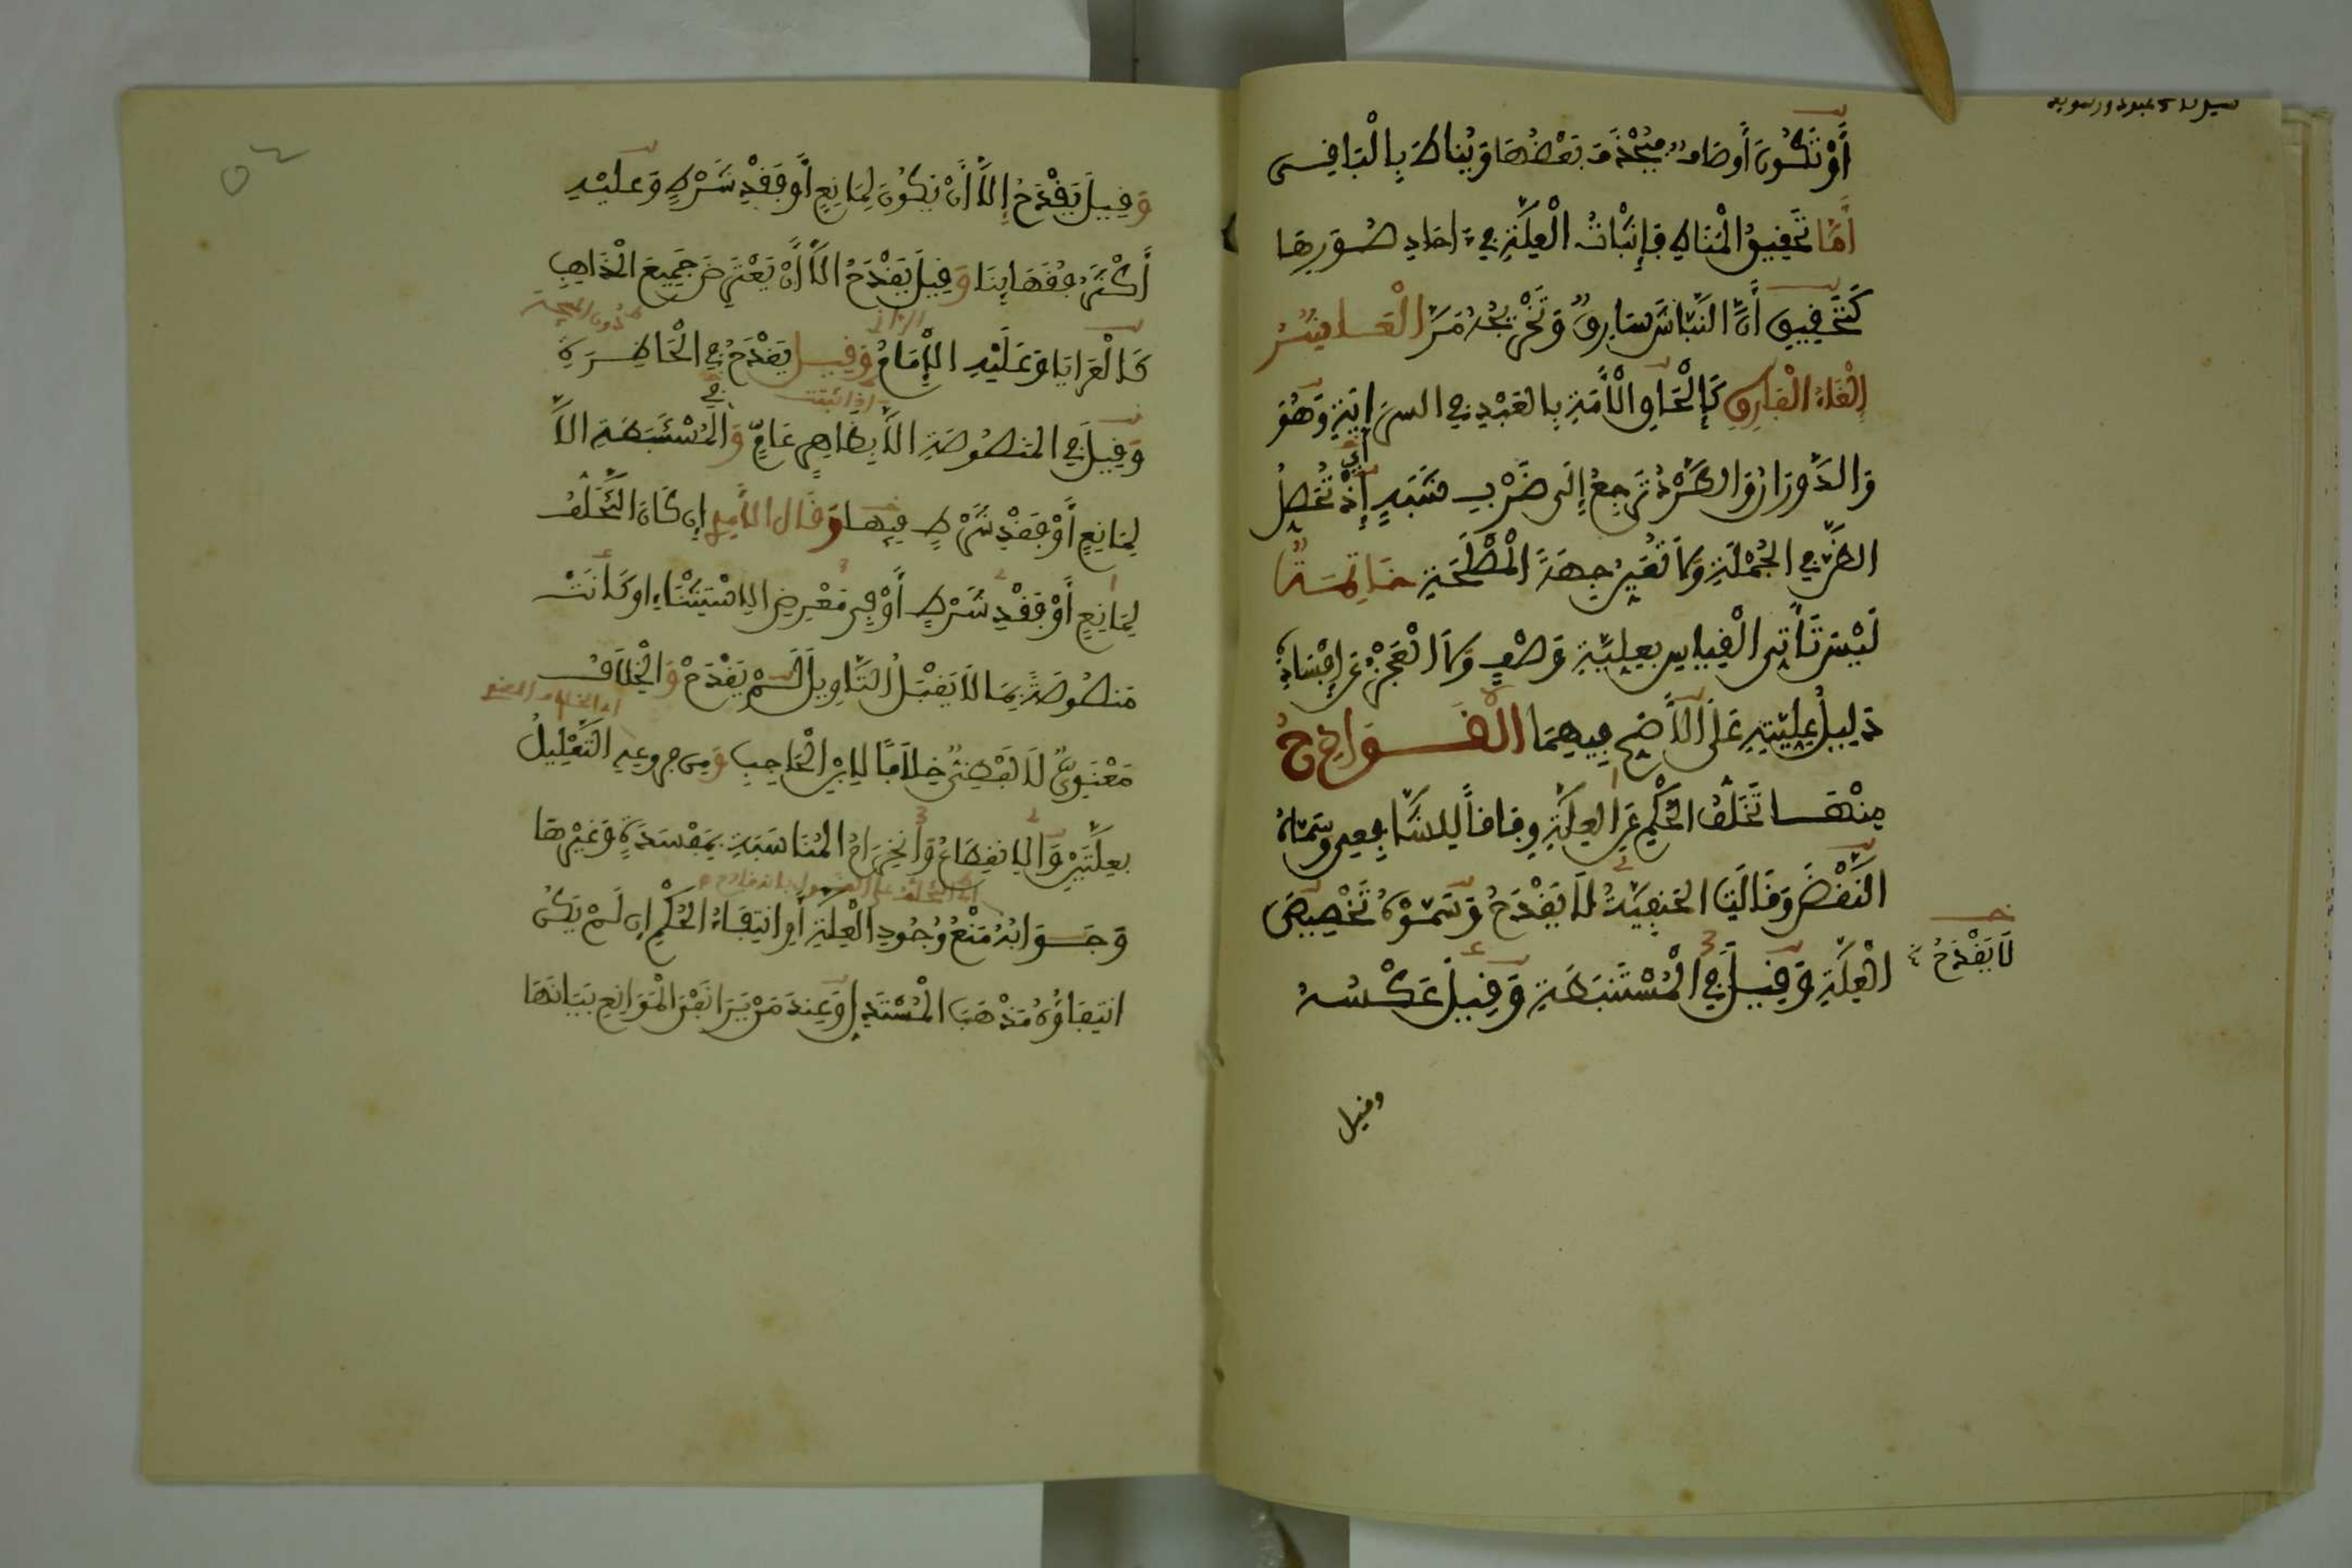 أَوْ تَكُونَ أَوصَافٌ فَيُحْذَفَ بَعْضُهَا وَيُنَاطَ بِالْبَاقِى
أَمَّا تَحْقِيقُ الْمَنَاطِ فَإِثْبَاتُ الْعِلَّةِ فِي ءَاحَادِ صُوَرِهَا
كَتَحْقِيقِ أَنَّ النَّبَّاشَ سَارِقٌ وَتَخْرِيجُهُ مَرَّ الْعَاشِرُ
إِلْغَاءُ الْفَارِقِ كَإِلْحَاقِ الْأَمَةِ بِالْعَبْدِ فِي السِّرَايَةِ وَهُوَ
وَالدَّوَرَانُ وَالطَّرْدُ تَرْجِعُ إِلَى ضَرْبِ شَبَهٍ إِذْ تُحَصِّلُ
أي
الظَّنَّ فِي الْجُمْلَةِ وَلَا تُعَيِّنُ جِهَةَ الْمَصْلَحَةِ خَاتِمَةٌ
لَيْسَ تَأَتِّى الْقِيَاسِ بِعِلِّيَّةِ وَصْفٍ وَلَا الْعَجْزُ عَنْ إِفْسَادِهِ
دَلِيلَ عِلِّيَّتِهِ عَلَى الْأَصَحِّ فِيهِمَا الْقَوَادِحُ
مِنْهَا تَخَلُّفُ الْحُكْمِ عَنِ الْعِلَّةِ وِفَاقاً لِلشَّافِعِى وَسَمَّاهُ
النَّقْضَ وَقَالَتِ الْحَنَفِيَّةُ لَا يَقْدَحُ وَسَمَّوْهُ تَخْصِيصَ
الْعِلَّةِ وَقِيلَ فِي الْمُسْتَنْبَطَةِ وَقِيلَ عَكْسُهُ
لَا يَقْدَحُ
وقيل
وَقِيلَ يَقْدَحُ إِلَّا أَنْ يَكُونَ لِمَانِعٍ أَوْ فَقْدِ شَرْطٍ وَعَلَيْهِ
أَكْثَرُ فُقَهَائِنَا وَقِيلَ يَقْدَحُ إِلَّا أَنْ يَعْتَرِضَ جَمِيعَ الْمَذَاهِبِ
كَالْعَرَايَا وَعَلَيْهِ الْإِمَامُ وَقِيلَ يَقْدَحُ فِي الْحَاظِرَةِ
دون المبيحة
الرازي
وَقِيلَ فِي الْمَنْصُوصَةِ إِلَّا بِظَاهِرٍ عَامٍّ وَالْمُسْتَنْبَطَةِ إِلَّا
في
لِمَانِعٍ أَوْ فَقْدِ شَرْطٍ فِيهَا وَقَالَ الْآمِدِي إِن كَانَ التَّخَلُّفُ
لِمَانِعٍ أَوْ فَقْدِ شَرْطٍ أَوْ فِى مَعْرِضِ الِاسْتِثْنَاءِ أو كَانَتْ
مَنصُوصَةً بِمَا لَا يَقْبَلُ التَّاوِيلَ لَمْ يَقْدَحْ وَالْخِلَافُ
مَعْنَوِيٌّ لَا لَفْظِيٌّ خِلَافًا لِابْنِ الْحَاجِبِ وَمِن فروعِهِ التَّعْلِيلُ
بِعِلَّتَيْنِ وَالِانقِطَاعُ وَانْخِرَامُ الْمُنَاسَبَةِ بِمَفْسَدَةٍ وَغَيْرِهَا
وَجَوَابُهُ مَنْعُ وُجُودِ الْعِلَّةِ أَوِ انْتِفَاءُ الْحُكْمِ إِن لَمْ يَكُنِ
انْتِفَاؤُهُ مَذْهَبَ الْمُسْتَدِلِّ وَعِندَ مَنْ يَرَى نَفْىَ الْمَوَانِعِ بَيَانُهَا